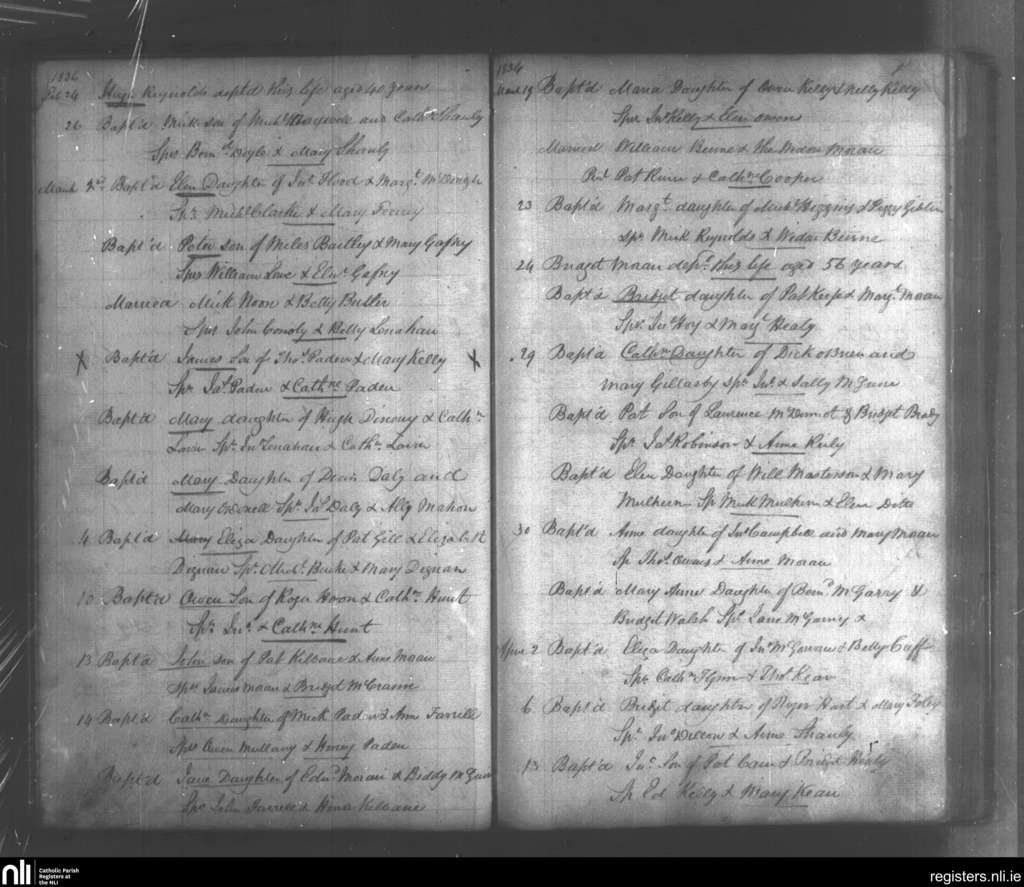 1836
Feb 24 Hugh Reynolds dept'd this life aged 40 years
26 Bapt'd Mick son of Mich'l and Cath'n Shanly
Sprs Bern'd Doyle & Mary Shanly
March 2nd Bapt'd Elen Daughter of Jn't Flood & Marg't McDonagh
Sprs Mich'l Clarke & Mary Feeney
Bapt'd Peter son of Miles Bailley & Mary Gafny
Sprs William Love & Eln'r Gafny
Married Mick Noon & Betty Butler
Sprs John Conoly & Betty Lenahan
X Bapt'd James Son of Tho's Paden & Mary Kelly X
Spr Ja's Paden & Cathne Paden
Bapt'd Mary daughter of Hugh & Cath'n
Spr Jn'o Lenahan & Cath'n
Bapt'd Mary Daughter of Denis Daly and
Mary Spr Ja's Daly & Ally Mahon
4 Bapt'd Mary Eliza Daughter of Pat Gill & Elizabeth
Dignan Sprs Mich'l Burke & Mary Dignan
10 Bapt'd Owen Son of Roger Hoon & Cath'n Hunt
Sprs Jn'o & Cathne Hunt
13 Bapt'd John son of Pat Kilbane & Anne Moran
Sprs James Moran & Bridget McCranne
14 Bapt'd Cath'n Daughter of Mick Paden & Ann Farrell
Sprs Owen Mullany & Honor Paden
Bapt'd Jane Daughter of Edm'd Moran & Biddy McGann
Sprs John Farrell & Hona Kilbane
1836
March 19 Bapt'd Maria Daughter of Owen Kelly & Nelly Kelly
Sprs Jn'o Kelly & Elen Owens
Married William Beirne & the Widow Moran
Pat & Cathne Cooper
23 Bapt'd Marg't daughter of Mich'l Higgins & Peggy Giblin
Sprs Mick Reynolds & Widow Beirne
24 Bridget Moran dep'd this life aged 56 years
Bapt'd Bridget daughter of Pat Keefe & Mary Moran
Sprs Jn'o Hoy & Mary Healy
29 Bapt'd Cathn Daughter of Dick OBrien and
Mary Spr Jn'o & Sally McGuire
Bapt'd Pat Son of Laurence McDermot & Bridget Brady
Spr Ja's Robinson & Anne Reily
Bapt'd Elen Daughter of Will Masterson & Mary
Mulhern Sp Mick Mulhern & Elen Ditto
30 Bapt'd Anne daughter of Jn'o Campbell and Mary Moran
Sp Tho's Owens & Anne Moran
Bapt'd Mary Anne Daughter of Bern'd McGarry &
Bridget Walsh Spr Jane McGarry &
Apriel 2 Bapt'd Eliza Daughter of Jn'o McGowan & Betty Cuff
Spr Cath'n Flynn & Tho's Kean
6 Bapt'd Bridget daughter of Roger Hart & Mary Foley
Spr Jn'o Dillon & Anne Shanly
13 Bapt'd Jn'o Son of Pat Cain & Bridget Healy
Sp Ed Kelly & Mary Kean
nli
Catholic Parish
Registers at
the NLI
registers.nli.ie